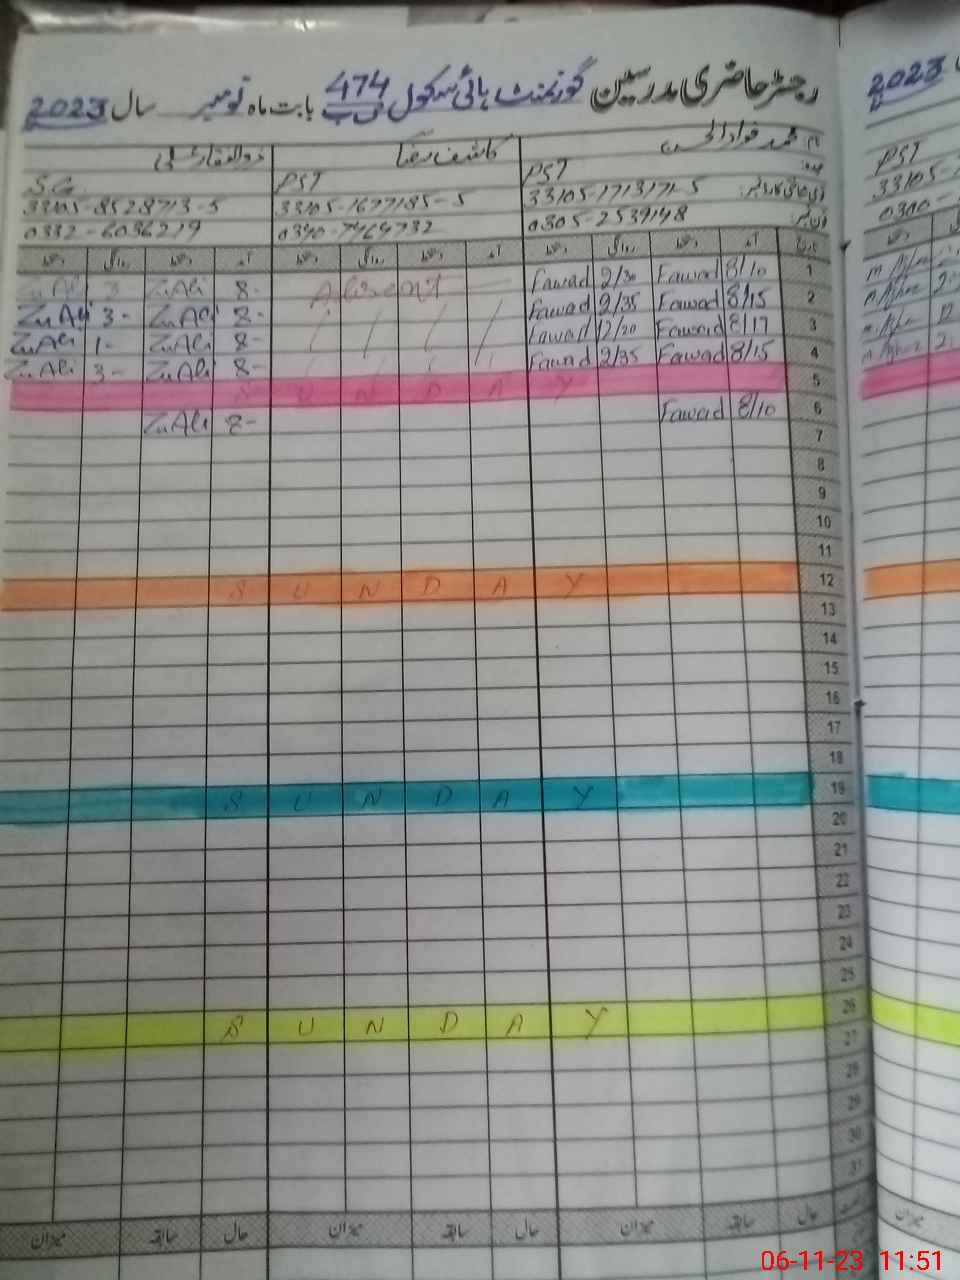 رجسٹر حاضری مدرسین گورنمنٹ ہائی سکول 474 گ ب بابت ماہ نومبر سال 2023
2023
نام محمد فواد الحسن کاشف رضا ذوالفقار علی
عہدہ PST PST PST
شناختی کارڈ نمبر 33105-1713171-5 33105-1677185-5 33105-8528713-5
فون نمبر 0305-2539148 0340-7464732 0332-6036219
تاریخ آمد دستخط روانگی دستخط آمد دستخط روانگی دستخط آمد دستخط روانگی دستخط
1 8/10 Fawad 2/30 Fawad Absent 8- ZuAli 3 ZuAli
2 8/15 Fawad 2/35 Fawad 8- ZuAli 3- ZuAli
3 8/17 Fawad 12/20 Fawad 8- ZuAli 1- ZuAli
4 8/15 Fawad 2/35 Fawad 8- ZuAli 3- ZuAli
5 S U N D A Y
6 8/10 Fawad 8- ZuAli
7
8
9
10
11
12 S U N D A Y
13
14
15
16
17
18
19 S U N D A Y
20
21
22
23
24
25
26 S U N D A Y
27
28
29
30
31
حال سابقہ میزان حال سابقہ میزان حال سابقہ میزان
06-11-23 11:51